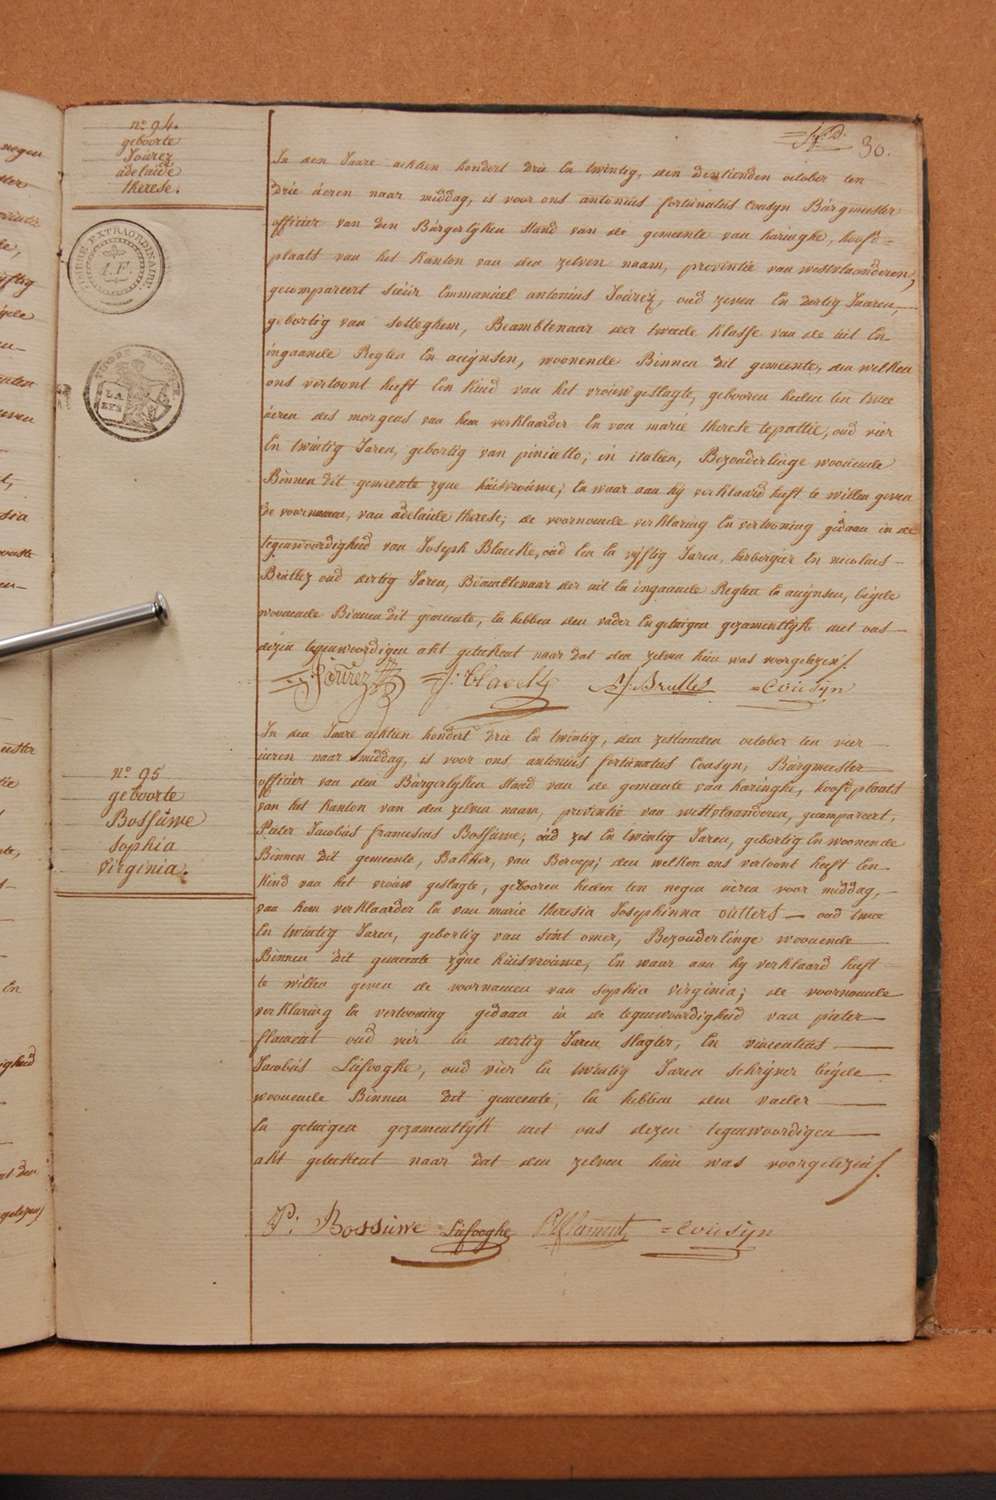 30.
n° 94.
geboorte
Jourez
adelaide
therese.
TIMBRE EXTRAORDINAIRE
1.F.
In den Jaare achtien hondert drie En twintig, den dertienden october ten
drie üeren naar middag, is voor ons antonius fortunatus Cousyn Bürgmeester
officier van den Bürgerlyken stand van de gemeente van haringhe, hoofd=
plaats van het kanton van den zelven naam, provintie van westvlaanderen,
gecompareert sieur Emmanuel antonius Jourez, oud zeven En dertig Jaaren,
gebortig van sotteghem, Beambtenaar der tweede klasse van de uit En
ingaande Regten En accynsen, woonende Binnen dit gemeente, den welken
ons vertoont heeft Een kind van het vrouwgeslagte, gebooren heden ten twee
üeren des morgens van hem verklaarder En van marie therese tepattie, oud vier
En twintig Jaren, gebortig van piniatto, in italien, Bezonderlinge woonende
Binnen dit gemeente zyne huisvrouwe; En waar aan hy verklaard heeft te willen geven
de voornamen, van adelaide therese; de voornoemde verklaring En vertooning gedaan in de
tegenwoordigheid van Joseph Blaecke, oud Een En vyftig Jaren, herbergier En nicolaes
Brullez oud dertig Jaren, Beambtenaar der uit En ingaande Regten En accynsen, beyde
woonende Binnen dit gemeente, En hebben den vader En getuigen gezamentlyk met ons
dezen tegenwoordigen akt geteekent naar dat den zelven hun was voorgelezen.
Jourez J: Blaecke N J: Brullez =Cousyn
n° 95
geboorte
Bossuwe
Sophia
virginia.
In den Jaare achtien hondert drie En twintig, den zestienden october ten vier
üeren naar middag, is voor ons antonius fortunatus Cousyn, Bürgmeester
officier van den Bürgerlyken stand van de gemeente van haringhe, hoofdplaats
van het kanton van den zelven naam, provintie van westvlaanderen, gecompareert,
Pieter Jacobus franciscus Bossuwe, oud zes En twintig Jaren, gebortig En woonende
Binnen dit gemeente, Bakker, van Beroep; den welken ons vertoont heeft Een
kind van het vrouw geslagte, gebooren heden ten negen üeren voor middag,
van hem verklaarder En van marie theresia Josephinna outters oud twee
En twintig Jaren, gebortig van sint omer, Bezonderlinge woonende
Binnen dit gemeente zyne huisvrouwe, En waar aan hy verklaard heeft
te willen geven de voornamen van sophia virginia; de voornoemde
verklaring En vertooning gedaan in de tegenwoordigheid van pieter
flament oud vier En dertig Jaren slagter, En vincentius
Jacobus Liefooghe, oud vier En twintig Jaren schryver beyde
woonende Binnen dit gemeente; En hebben den vader
En getuigen gezamentlyk met ons dezen tegenwoordigen
akt geteekent naar dat den zelven hun was voorgelezen.
P: Bossuwe Liefooghe P flament =Cousyn